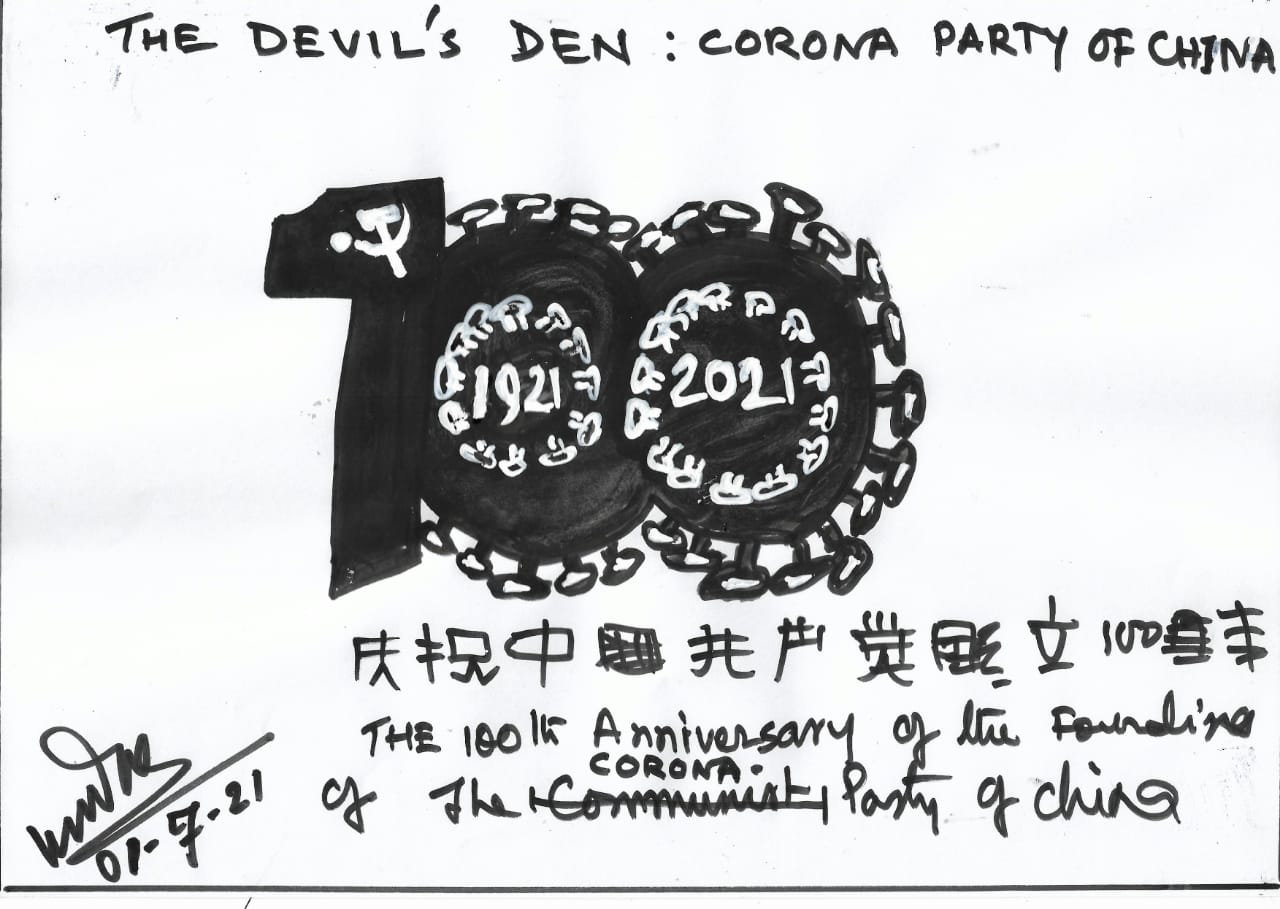 THE DEVIL'S DEN : CORONA PARTY OF CHINA
1921
2021
庆祝中 共产党 立100 年
THE 100th Anniversary of the Founding
CORONA.
of The Communist Party of China
01-7-21